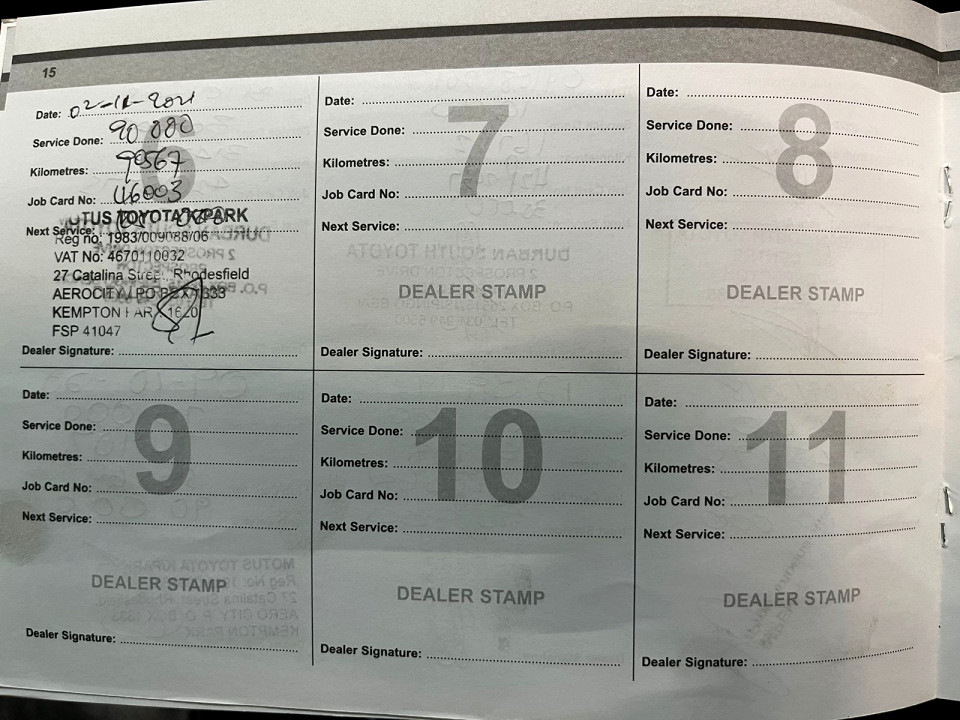 15
Date: 02-11-2021
Service Done: 90 000
Kilometres: 90567
Job Card No: 46003
UTUS TOYOTA K/PARK
Next Service:
Reg no: 1983/009088/06
VAT No: 4670110032
27 Catalina Street, Rhodesfield
AEROCITY / PO BOX 1333
KEMPTON PARK 1620
FSP 41047
Dealer Signature:
7
Date:
Service Done:
Kilometres:
Job Card No:
Next Service:
DEALER STAMP
Dealer Signature:
8
Date:
Service Done:
Kilometres:
Job Card No:
Next Service:
DEALER STAMP
Dealer Signature:
9
Date:
Service Done:
Kilometres:
Job Card No:
Next Service:
DEALER STAMP
Dealer Signature:
10
Date:
Service Done:
Kilometres:
Job Card No:
Next Service:
DEALER STAMP
Dealer Signature:
11
Date:
Service Done:
Kilometres:
Job Card No:
Next Service:
DEALER STAMP
Dealer Signature: